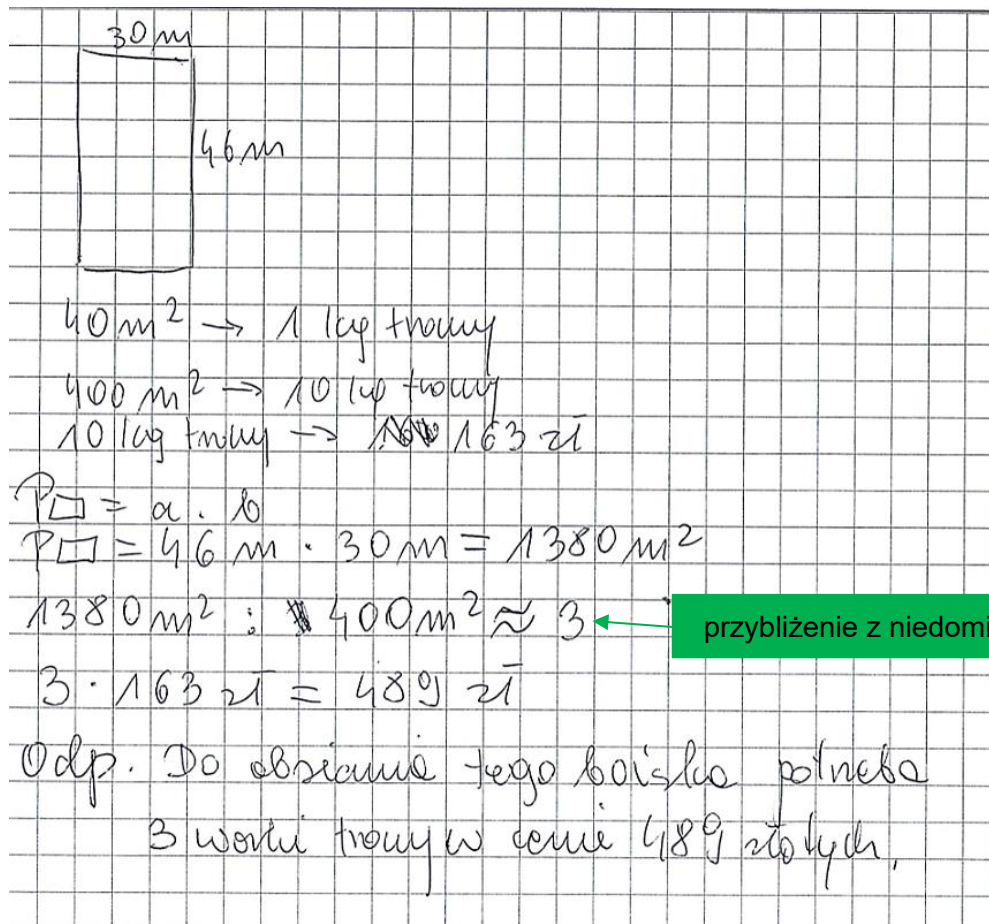 30 m
46 m
40 m² → 1 kg trawy
400 m² → 10 kg trawy
10 kg trawy → 163 zł
P▭ = a · b
P▭ = 46 m · 30 m = 1380 m²
1380 m² : 400 m² ≈ 3
przybliżenie z niedomi
3 · 163 zł = 489 zł
Odp. Do obsiania tego boiska potrzeba
3 worki trawy w cenie 489 złotych.